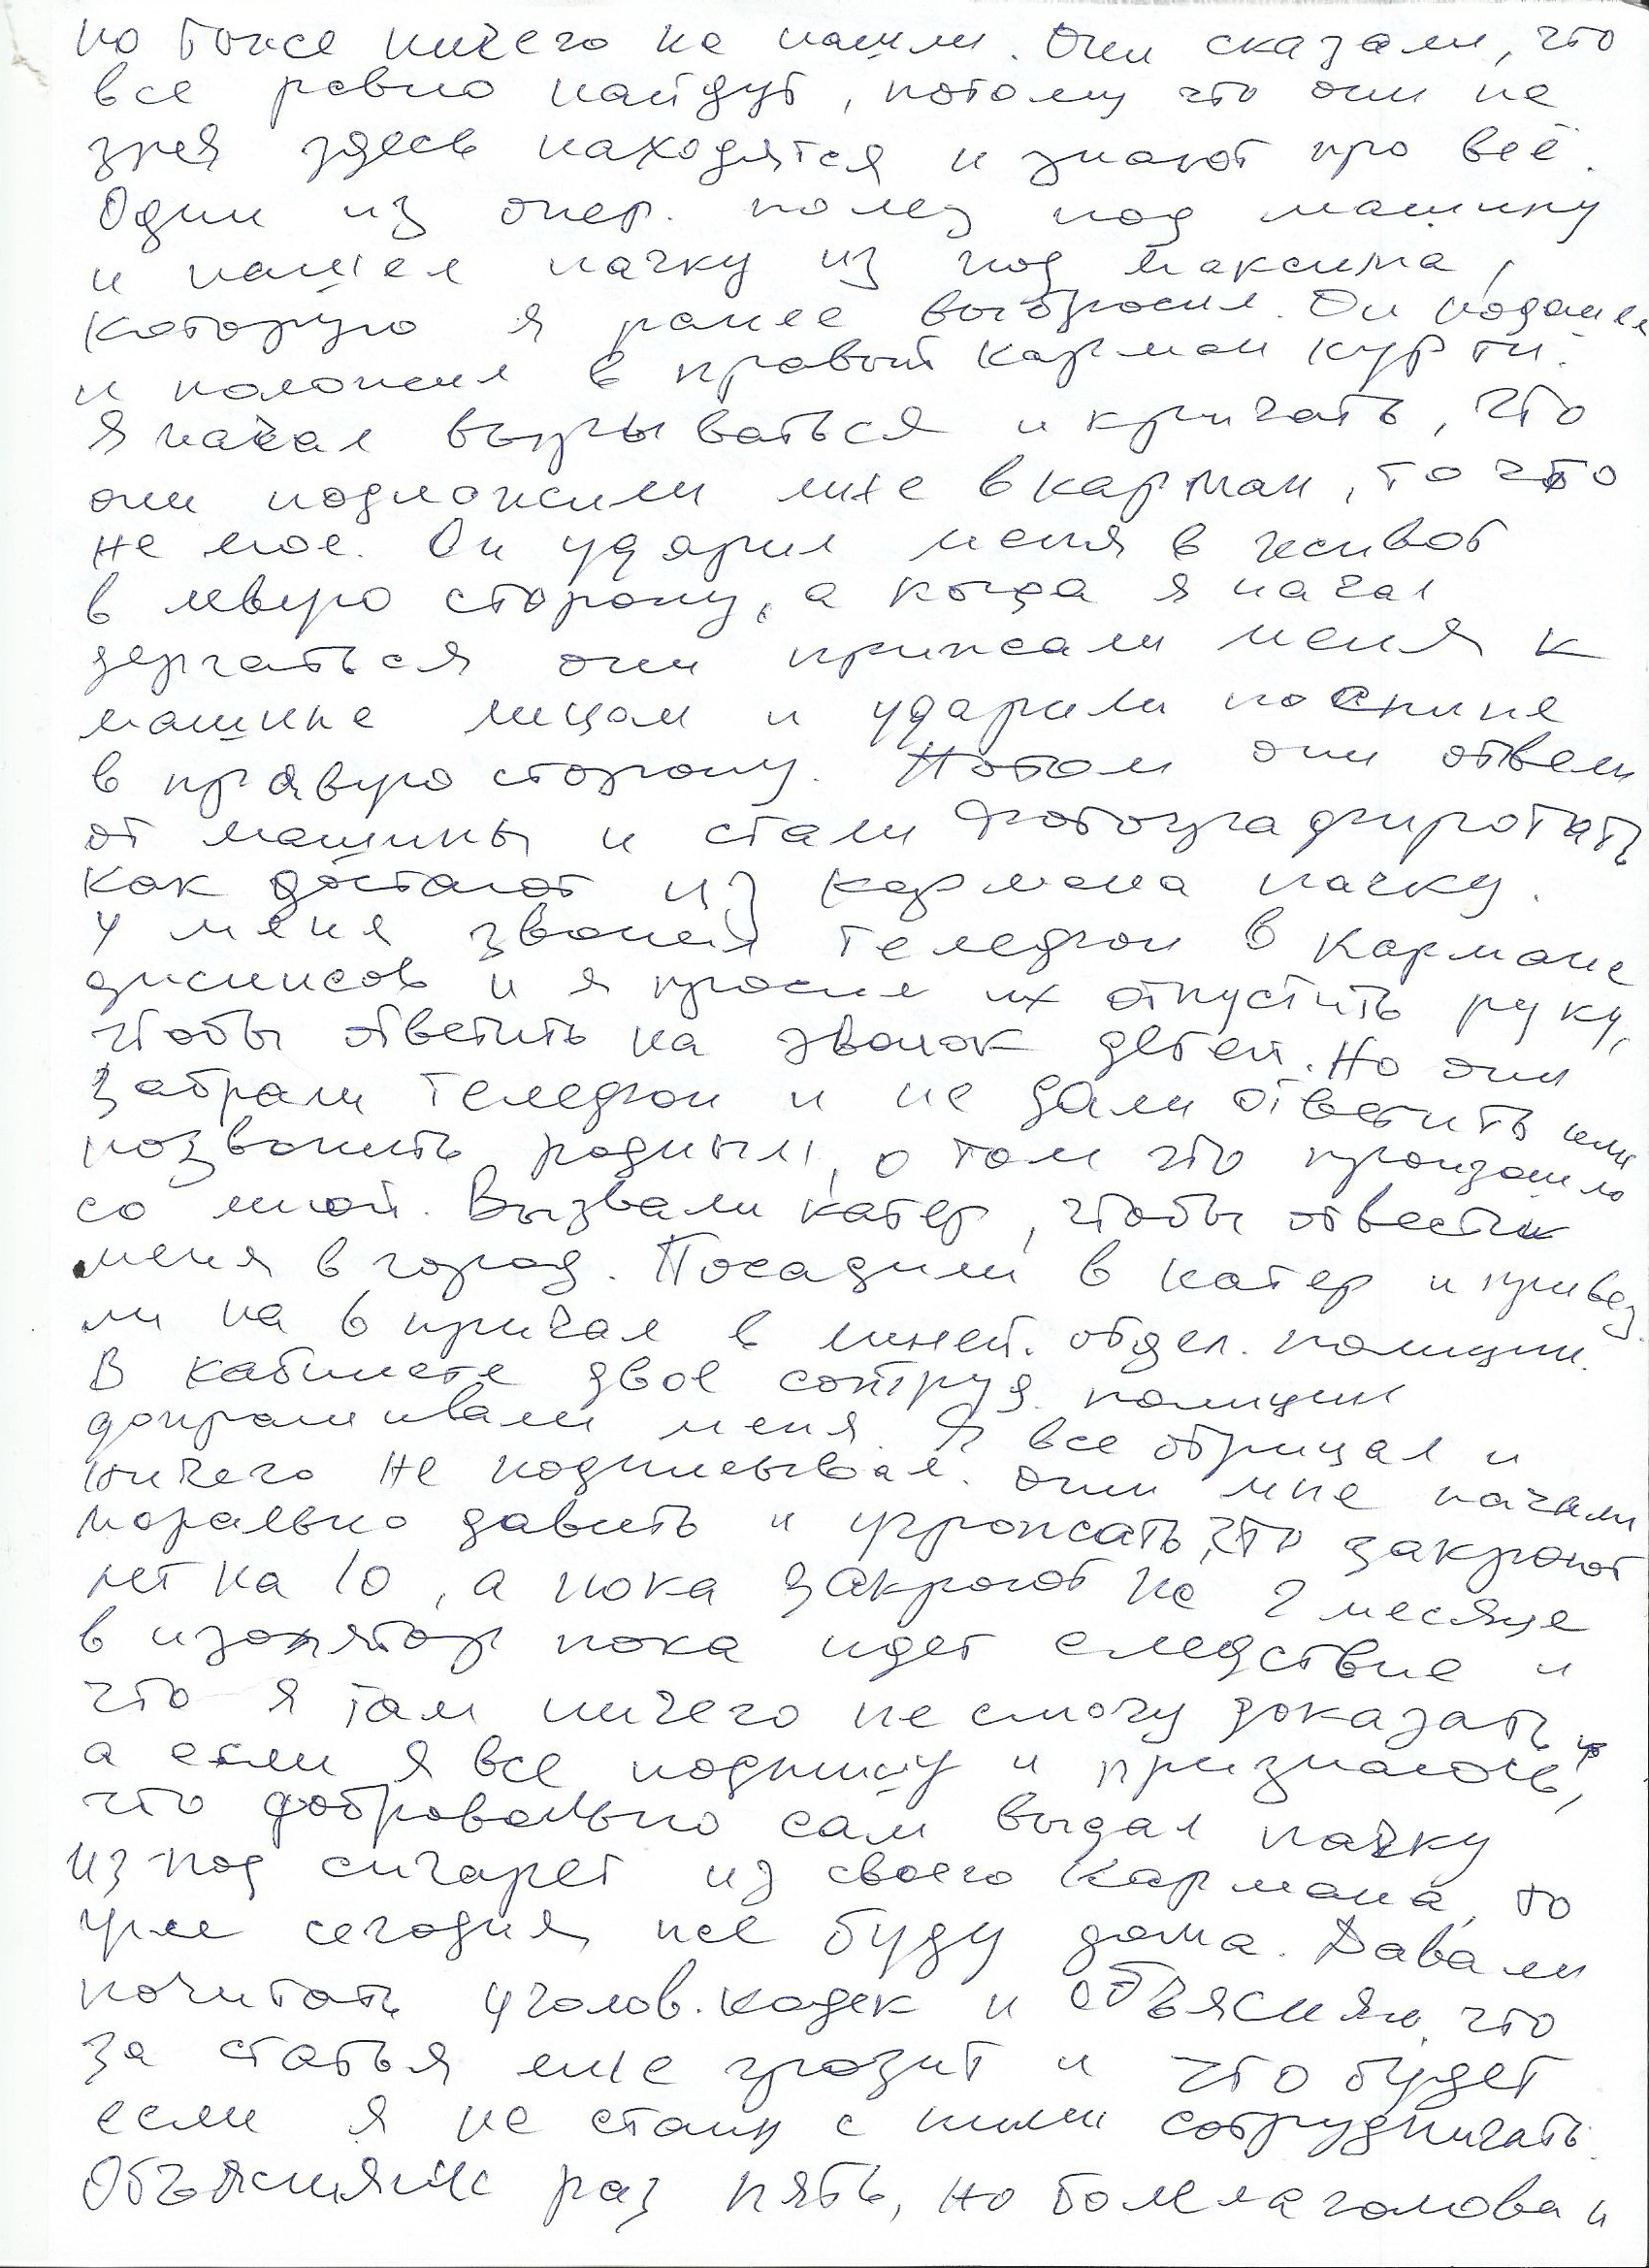 но тоже ничего не нашли. Они сказали, что
все равно найдут, потому что они не
зря здесь находятся и знают про всё.
Один из опер. полез под машину
и нашел пачку из под Максима,
которую я ранее выбросил. Он подошел
и положил в правый карман куртки.
Я начал вырываться и кричать, что
они подложили мне в карман, то что
не мое. Он ударил меня в живот
в левую сторону, а когда я начал
дергаться они прижали меня к
машине лицом и ударили по спине
в правую сторону. Потом они отвели
от машины и стали фотографировать
как достают из кармана пачку.
У меня звонил телефон в кармане
джинсов и я просил их отпустить руку,
чтобы ответить на звонок детей. Но они
забрали телефон и не дали ответить или
позвонить родным, о том что произошло
со мной. Вызвали катер, чтобы отвести
меня в город. Посадили в катер и привез
ли на 6 причал в линей. отдел. полиции.
В кабинете двое сотруд. полиции
допрашивали меня. Я все отрицал и
ничего не подписывал. Они мне начали
морально давить и угрожать, что закроют
лет на 10, а пока закроют на 2 месяца
в изолятор пока идет следствие и
что я там ничего не смогу доказать,
а если я все подпишу и признаюсь,
что добровольно сам выдал пачку
из-под сигарет из своего кармана, то
уже сегодня буду дома. Давали
почитать уголов. кодек и объясняли, что
за статья мне грозит и что будет
если я не стану с ними сотрудничать.
Объясняли раз пять, но болела голова и